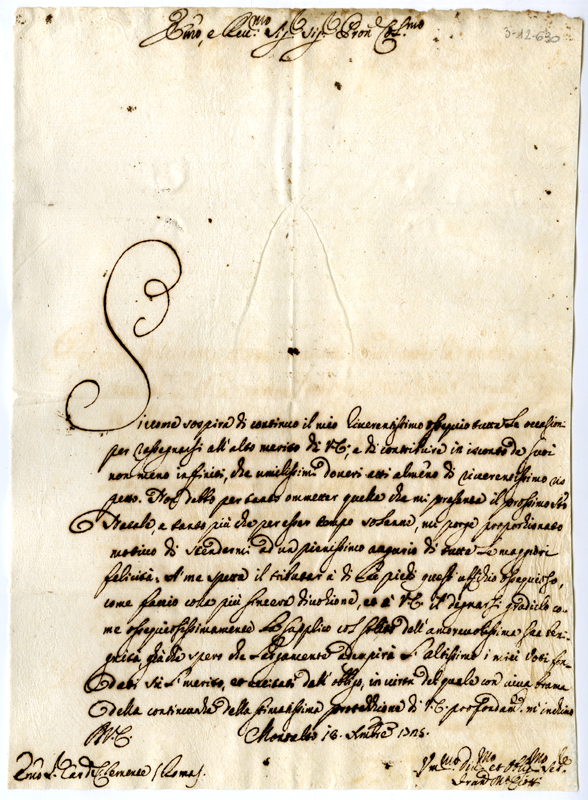 Em̃o, e Reu.mo Sig.r Sig.r Pron Col.mo
3-12-630
Siccome sospira di continuo il mio riuerentissimo ossequio tutte le occasioni
per rassegnarsi all'alto merito di V.E., e di contribuire in isconto de suoi
non meno infiniti, che umilissimi doueri atti almeno di riuerentissimo ris
petto. Non debbo per tanto ommetter quella che mi presenta il prossimo Sto
Natale, e tanto più che per esser tempo solenne, mi porge proporzionato
motiuo di stendermi ad un pienissimo augurio di tutte le maggiori
felicità. A me spetta il tributar a di Lei piedi quest' uffizio ossequioso,
come faccio con la più sincera diuozione, et a V.E. il degnarsi gradirlo co-
me ossequiosissimamente La supplico col solito dell' amoreuolissima sua beni-
gnità, già che spero che largamente adempirà l' Altissimo i miei voti fon
dati sù 'l merito, et eccitati dall' obligo, in virtù del quale con uiua brama
della continuanza della stimatissima protezzione di V.E. profondam.e m' inchino
D. V.E. Montalto 18. Xmbre 1725.
Em̃o S.r Card. S. Clemente / Roma /.
Vm.mo Diu.mo et Obl.mo Se.re